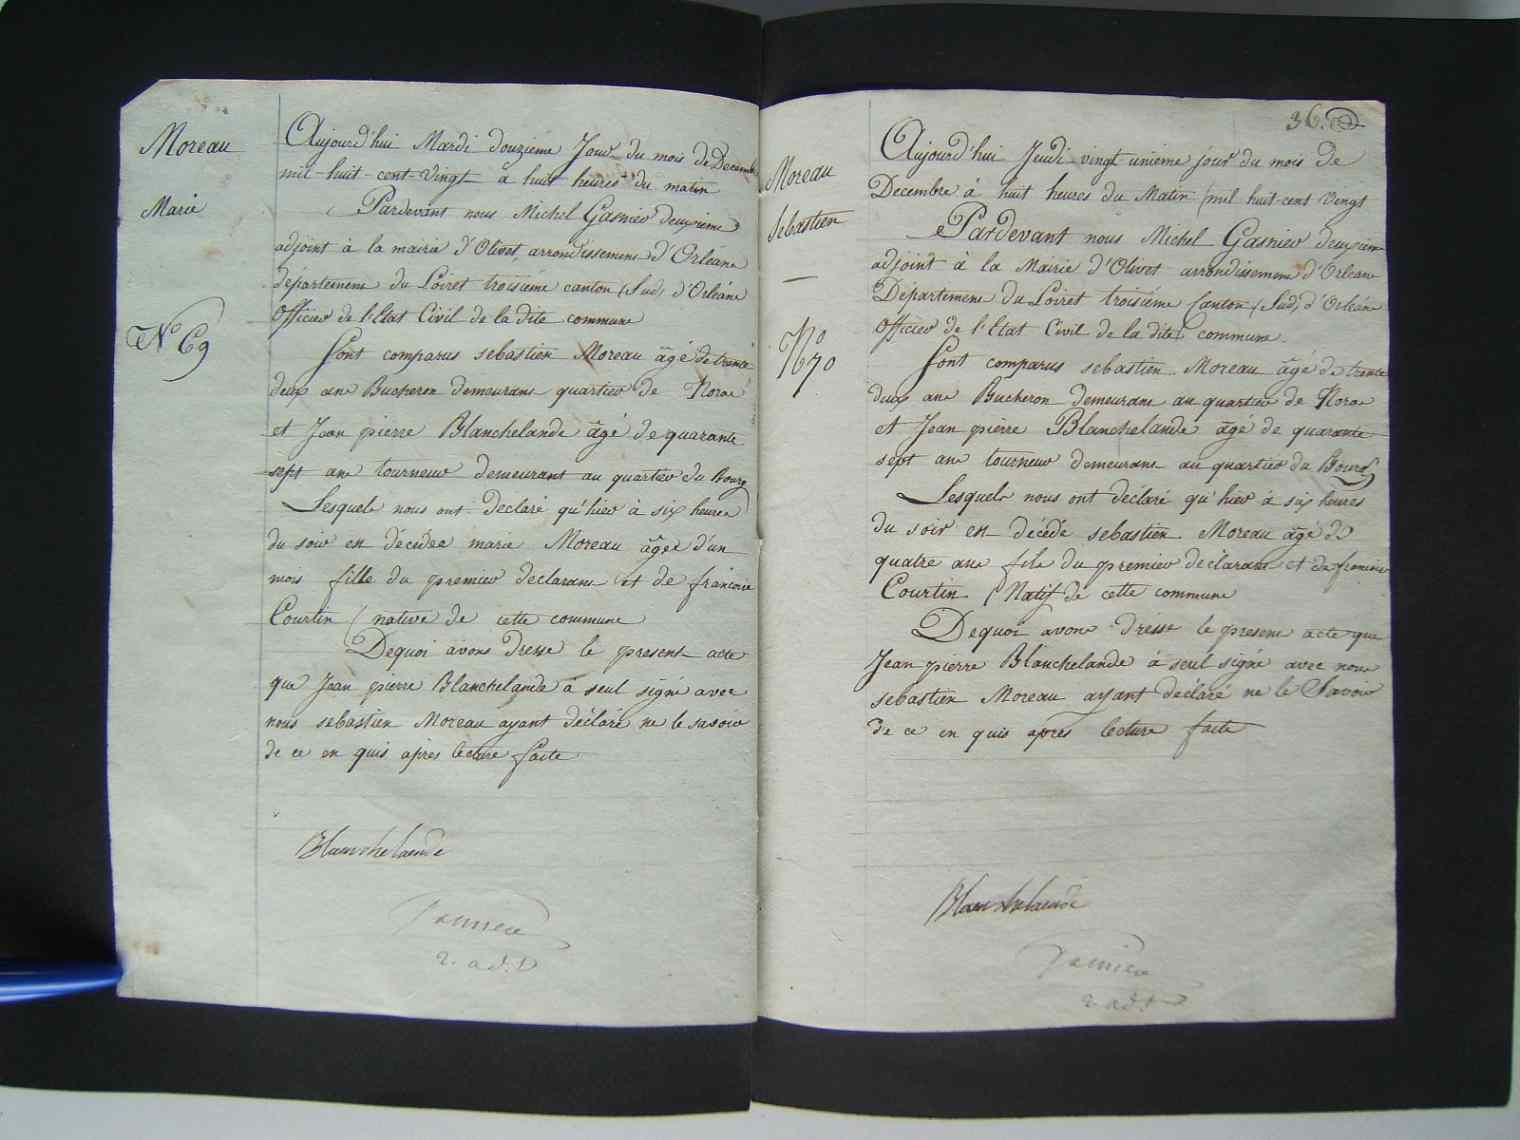 Moreau
Marie
N.o 69
Aujourd'hui Mardi douzieme Jour du mois de Decembre
mil-huit-cent-vingt à huit heures du matin
Pardevant nous Michel Gasnier deuxieme
adjoint à la mairie d'Olivet, arrondissement d'Orléans
département du Loiret troisieme canton (Sud) d'Orléans
Officier de l'Etat Civil de la dite commune
Sont comparus sebastien Moreau âgé de trente
deux ans Bucheron demeurant quartier de
et Jean pierre Blanchelande âgé de quarante
sept ans tourneur demeurant au quartier du Bourg
Lesquels nous ont déclaré qu'hier à six heures
du soir est décédée marie Moreau âgée d'un
mois fille du premier declarant et de francoise
Courtin (native de cette commune
Dequoi avons dressé le present acte
que Jean pierre Blanchelande a seul signé avec
nous sebastien Moreau ayant déclaré ne le savoir
de ce en quis après lecture faite
Blanchelande
2. adt
36.
Moreau
Sebastien
N.o 70
Aujourd'hui Jeudi vingt unieme jour du mois de
Decembre à huit heures du Matin (mil huit cent vingt
Pardevant nous Michel Gasnier deuxieme
adjoint à la Mairie d'Olivet arrondissement d'Orleans
Département du Loiret troisieme Canton (Sud) d'Orléans
Officier de l'Etat Civil de la dite commune.
Sont comparus sebastien Moreau âgé de trente
deux ans Bucheron demeurant au quartier de
et Jean pierre Blanchelande âgé de quarante
sept ans tourneur demeurant au quartier du Bourg
Lesquels nous ont déclaré qu'hier à six heures
du soir est décédé sebastien Moreau âgé de
quatre ans fils du premier declarant et de francoise
Courtin (Natif de cette commune
Dequoi avons dressé le present acte que
Jean pierre Blanchelande à seul signé avec nous
sebastien Moreau ayant déclaré ne le Savoir
de ce en quis après lecture faite
Blanchelande
2. adt